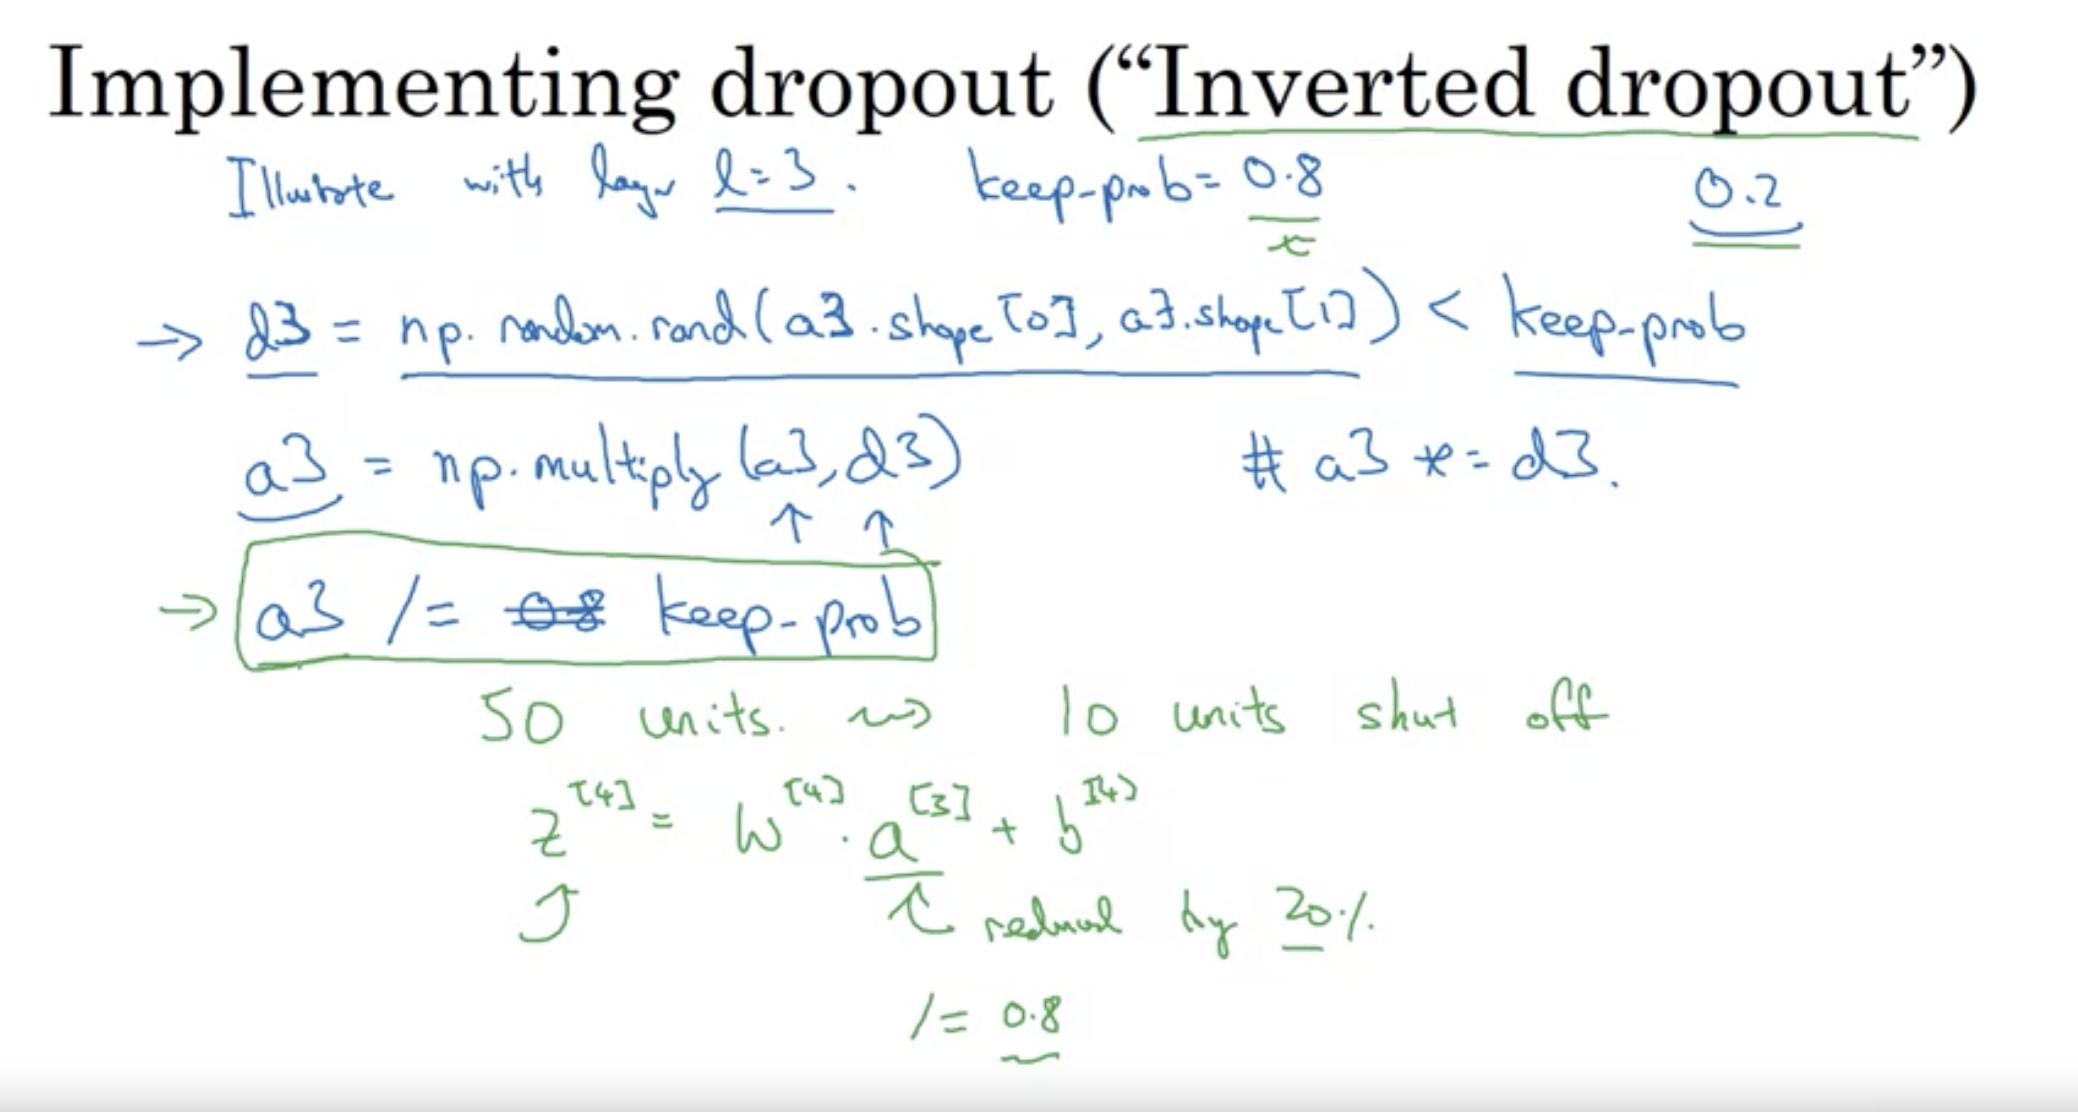 Implementing dropout (“Inverted dropout”)
Illustrate with layer l=3. keep-prob= 0.8 0.2
→ d3 = np.random.rand(a3.shape[0], a3.shape[1]) < keep-prob
a3 = np.multiply(a3, d3) # a3 *= d3.
↑ ↑
→ a3 /= 0.8 keep-prob
50 units. ⇝ 10 units shut off
z^[4] = W^[4] · a^[3] + b^[4]
reduced by 20%.
/= 0.8